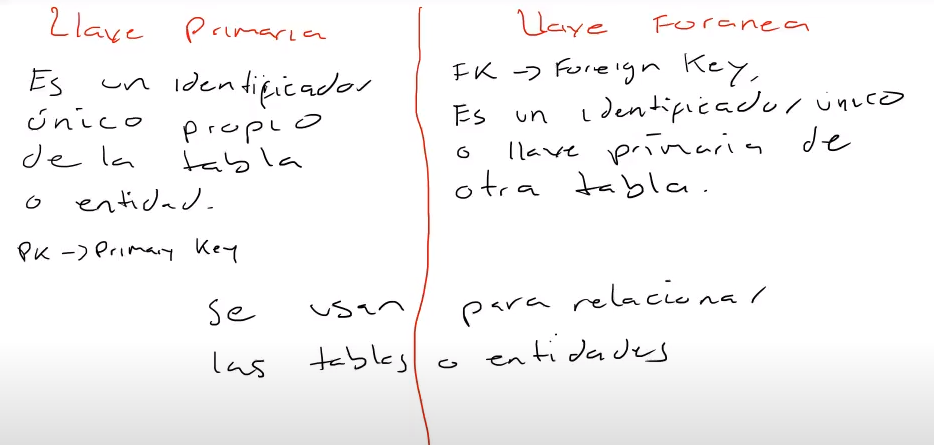 Llave Primaria
Es un identificador
único propio
de la tabla
o entidad.
PK -> Primary Key
Llave Foranea
FK -> Foreign Key,
Es un identificador único
o llave primaria de
otra tabla.
Se usan para relacionar
las tablas o entidades